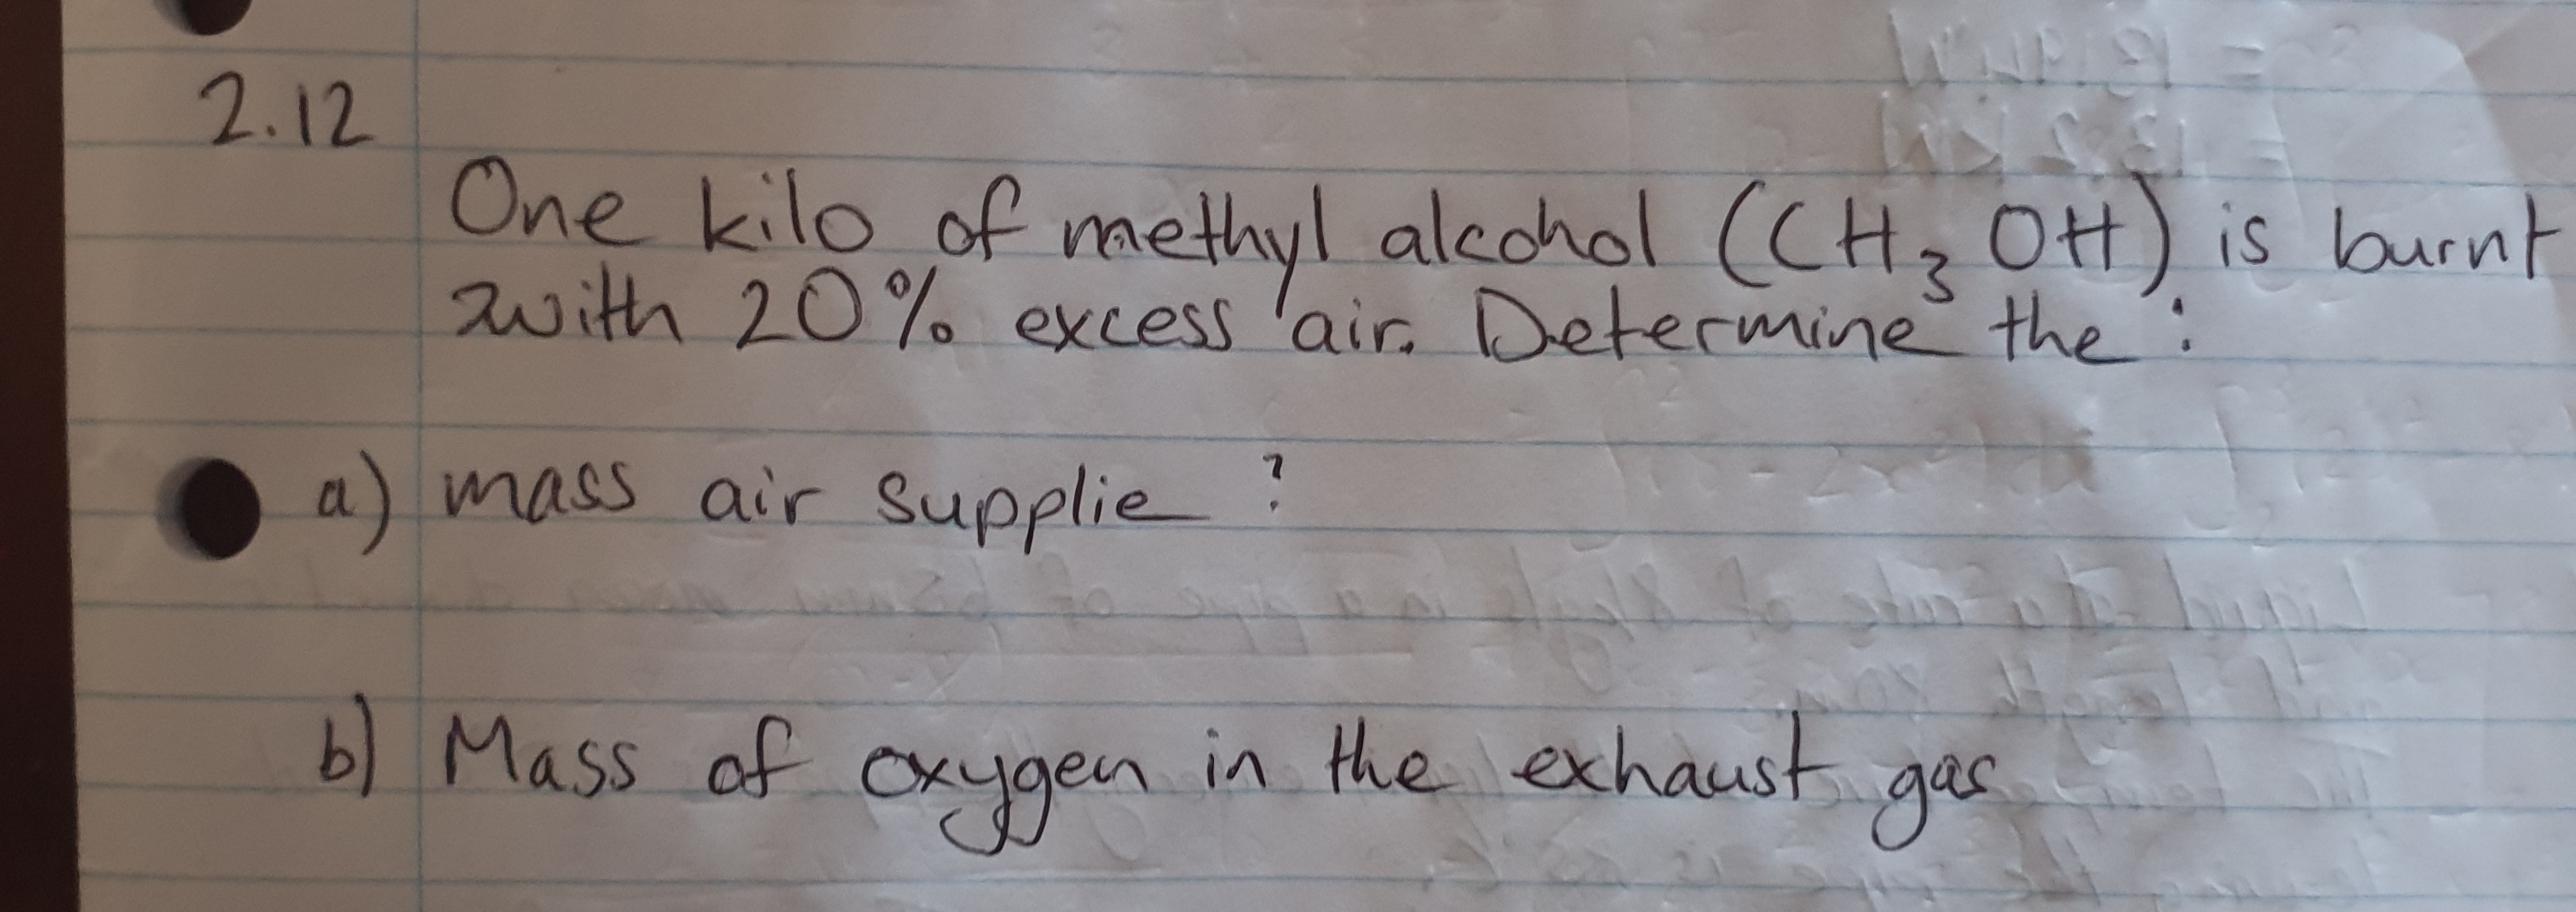 2.12
One kilo of methyl alcohol (CH3 OH) is burnt
with 20% excess air. Determine the :
a) mass air supplie ?
b) Mass of oxygen in the exhaust gas